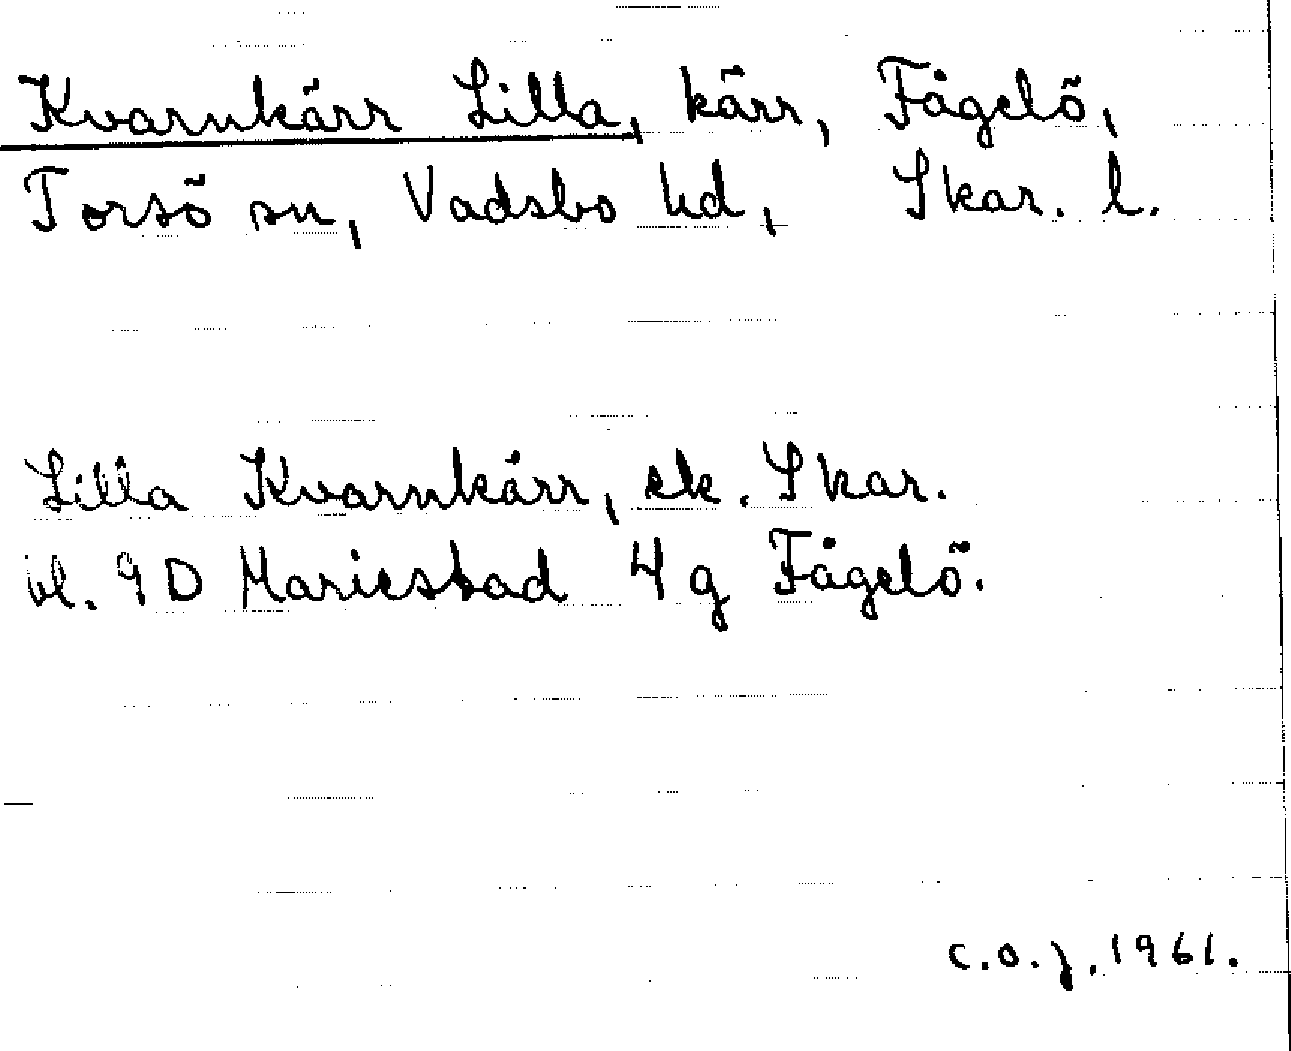 Kvarnkärr Lilla, kärr, Fågelö,
Torsö sn, Vadsbo hd, Skar. l.
Lilla Kvarnkärr, ek. Skar.
bl. 9D Mariestad 4g Fågelö.
C.O.J. 1961.